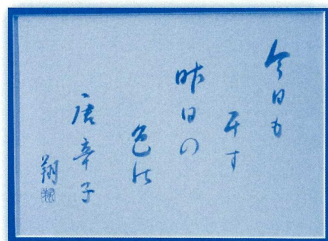 今日も
干す
昨日の
色の
唐辛子
翔